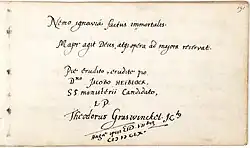 Nemo ignavia factus immortalis.
Maior agit Deus, atque opera ad majora remittit.
Pie erudito, erudite pio
Dno Jacobo Heiblocq,
SS ministerii Candidato,
L. P.
Theodorus Graswinckel. JC
CIↃ IↃ CLX.